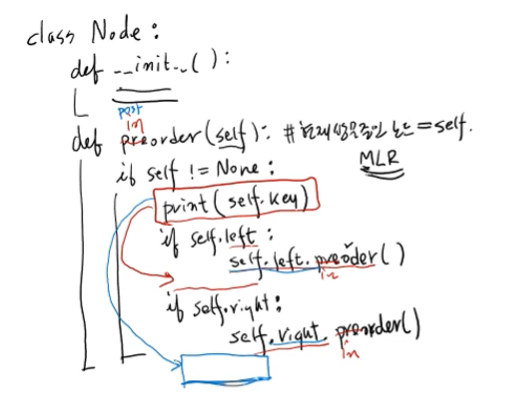 class Node :
def __init__( ) :
post
in
def preorder(self): # 현재 방문중인 노드 = self.
MLR
if self != None :
print(self.key)
if self.left :
self.left.preoder( )
in
if self.right :
self.right.preorder( )
in